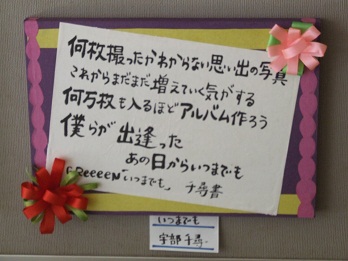 何枚撮ったかわからない思い出の写真
これからまだまだ増えていく気がする
何万枚も入るほどアルバム作ろう
僕らが出逢った
あの日からいつまでも
GReeeeN いつまでも 千尋書
いつまでも
宇部千尋